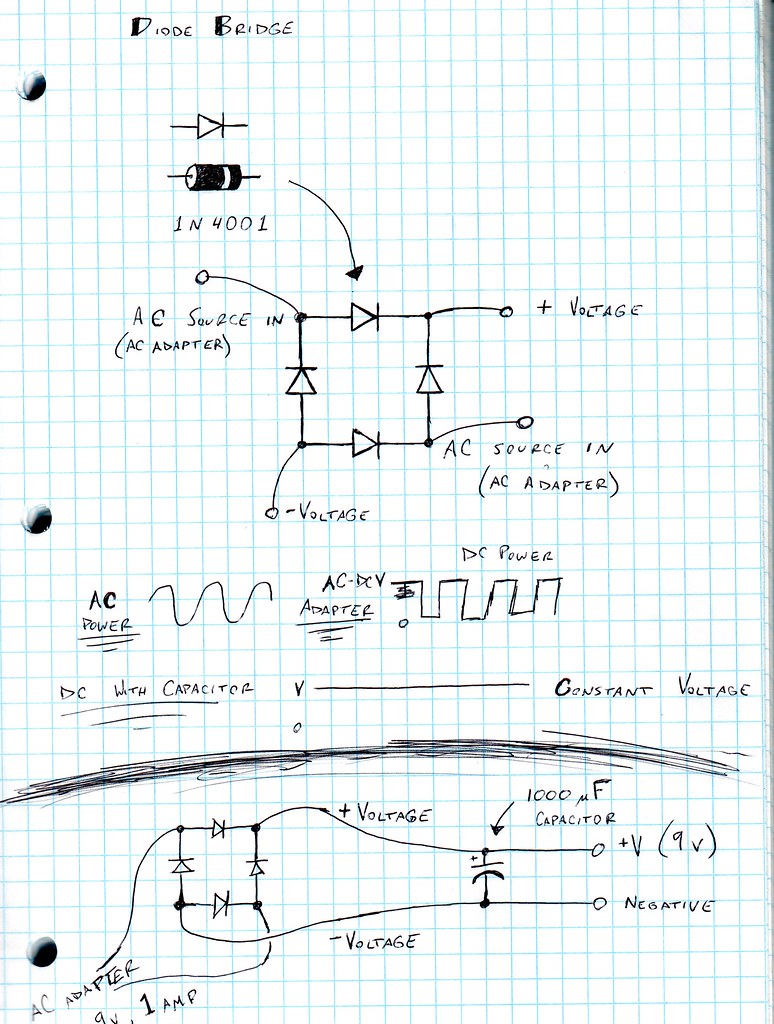 DIODE BRIDGE
1N4001
AC SOURCE IN
(AC ADAPTER)
+ VOLTAGE
AC SOURCE IN
(AC ADAPTER)
-VOLTAGE
DC POWER
AC
POWER
AC-DC
ADAPTER
V
0
DC WITH CAPACITOR
V
CONSTANT VOLTAGE
0
1000 µF
CAPACITOR
+VOLTAGE
+
+V (9v)
NEGATIVE
-VOLTAGE
AC ADAPTER
9v, 1 AMP